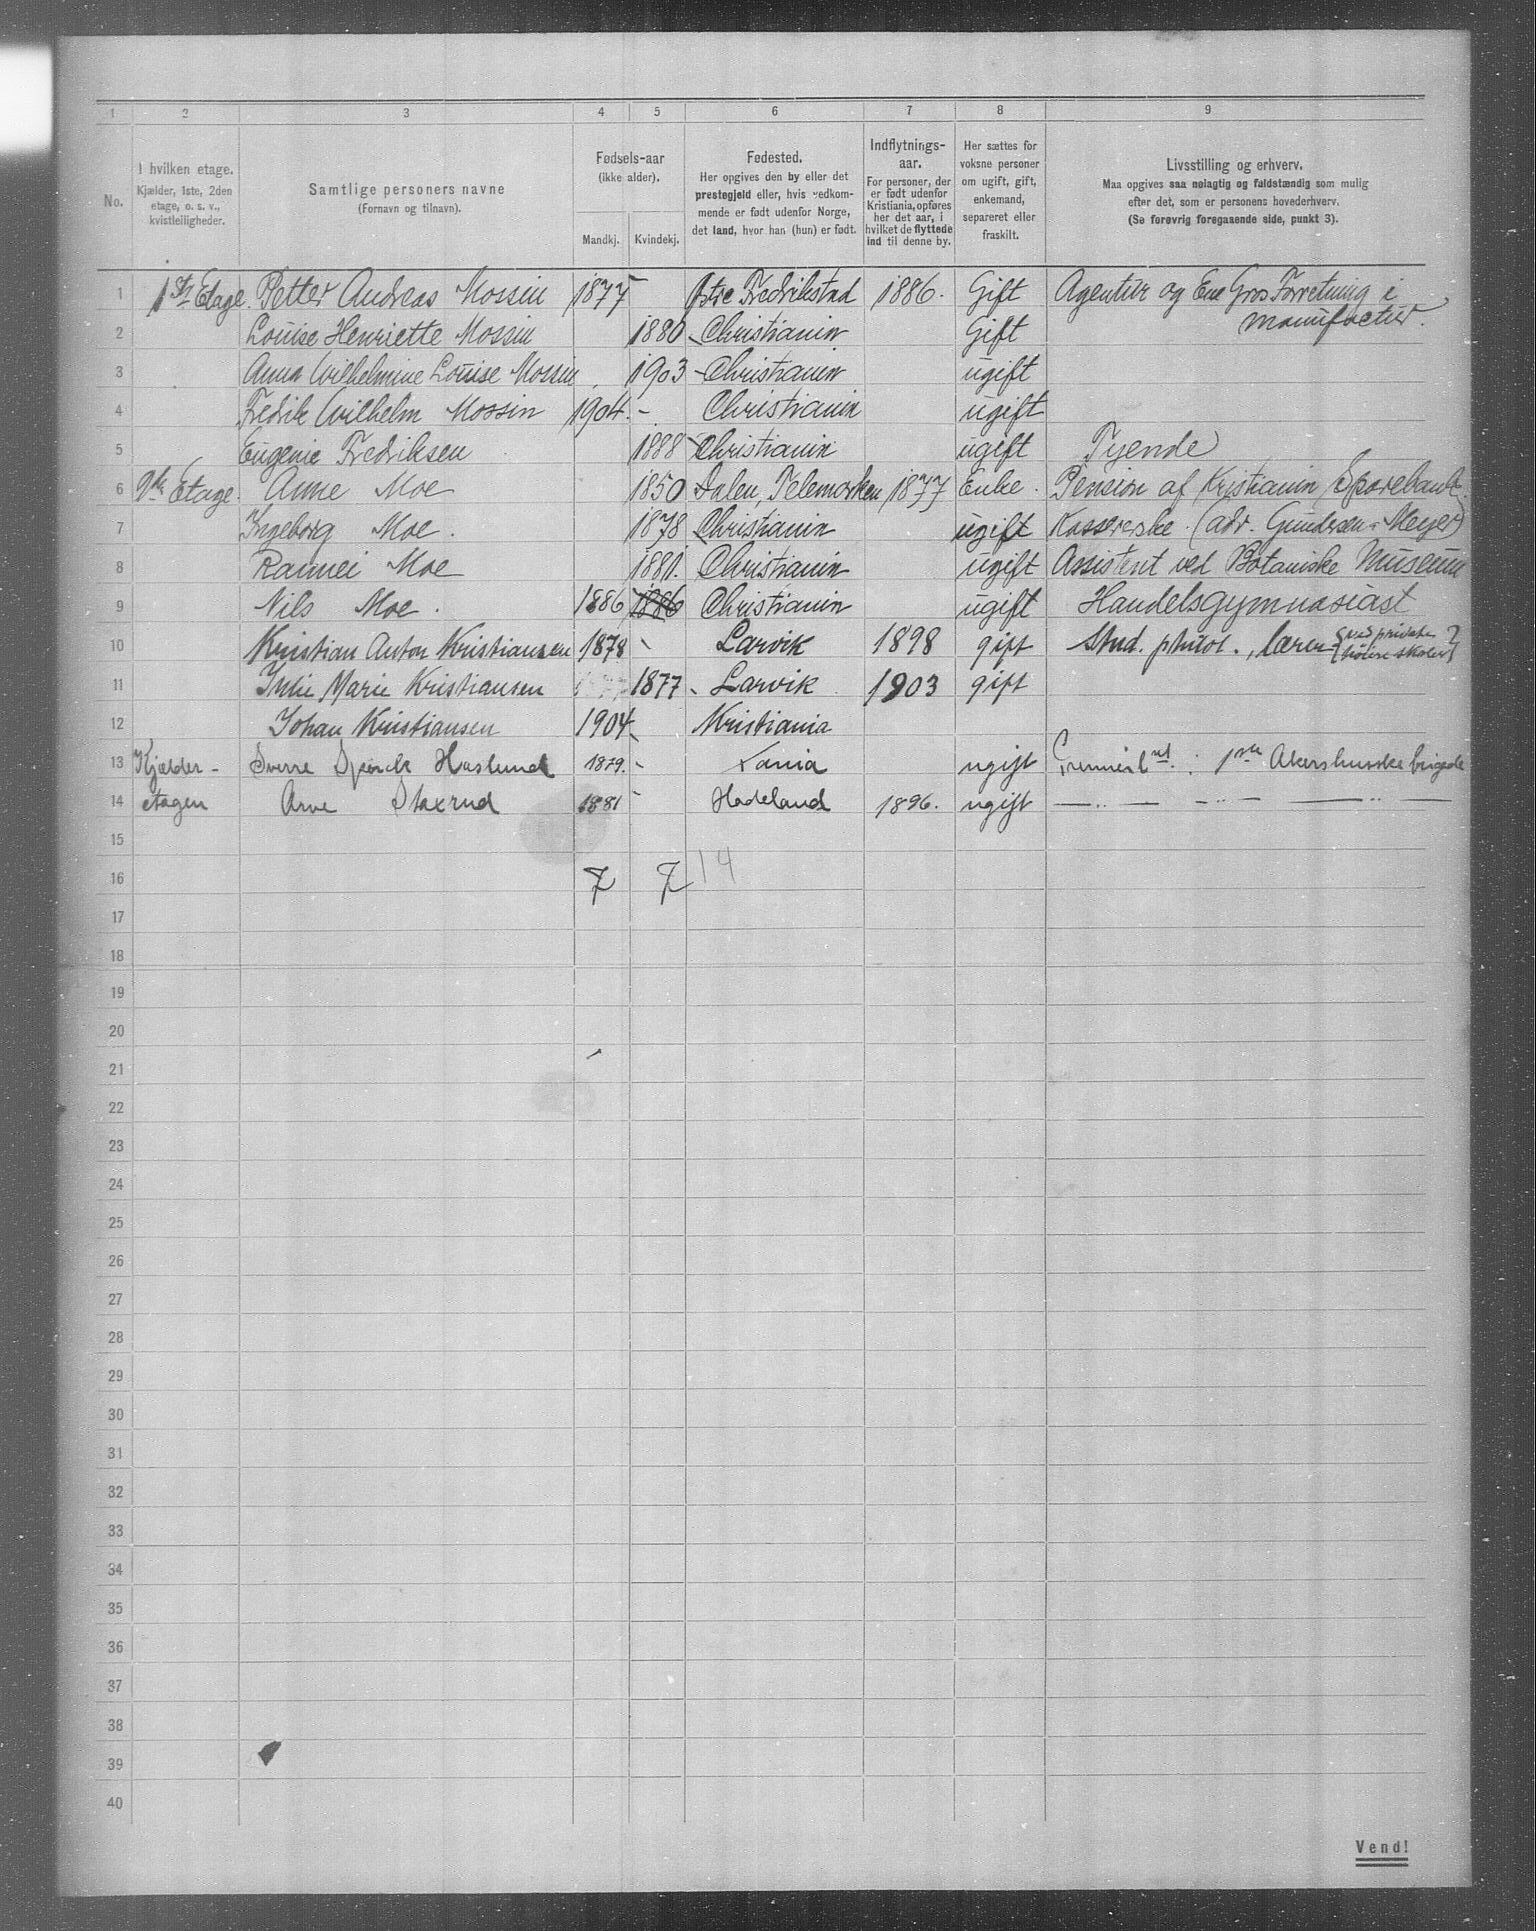 1 2 3 4 5 6 7 8 9
No.
I hvilken etage.
Kjælder, 1ste, 2den
etage, o. s. v.,
kvistleiligheder.
Samtlige personers navne
(Fornavn og tilnavn).
Fødsels-aar
(ikke alder).
Mandkj. Kvindekj.
Fødested.
Her opgives den by eller det
prestegjeld eller, hvis vedkom-
mende er født udenfor Norge,
det land, hvor han (hun) er født.
Indflytnings-
aar.
For personer, der
er født udenfor
Kristiania, opføres
her det aar, i
hvilket de flyttede
ind til denne by.
Her sættes for
voksne personer
om ugift, gift,
enkemand,
separeret eller
fraskilt.
Livsstilling og erhverv.
Maa opgives saa nøiagtig og fuldstændig som mulig
efter det, som er personens hovederhverv.
(Se forøvrig foregaaende side, punkt 3).
1 1ste Etage. Petter Andreas Mossin 1877 Østre Fredrikstad 1886. Gift Agentur og En Gros Forretning i
manufactur.
2 Louise Henriette Mossin 1880 Christiania Gift
3 Anna Wilhelmine Louise Mossin 1903 Christiania ugift
4 Fredik Wilhelm Mossin 1904. - Christiania ugift
5 Eugenie Fredriksen 1888 Christiania ugift Tjende
6 Etage. Anne Moe 1850 Dalen, Telemarken 1877 Enke. Pension af Kristiania Sparebank.
7 Ingeborg Moe. 1878 Christiania ugift Kassererske. (adv. Gundersen - Meyer)
8 Rannei Moe 1881. Christiania ugift Assistent ved Botaniske Museum
9 Nils Moe. 1886 1886 Christiania ugift Handelsgymnasiast
10 Kristian Anton Kristiansen 1878 - Larvik 1898 gift stud. philol., lærer {ved private
høiere skoler}
11 Julie Marie Kristiansen 1877 - Larvik 1903 gift
12 Johan Kristiansen 1904 - Kristiania
13 Kjælder- Sverre Spørck Haslund 1879. - Xania ugift Premierlnt. : 1ste Akershusske brigade
14 etagen Arve Staxrud 1881 - Hadeland 1896. ugift — " — - " — — " —
15
16 7 7 14
17
18
19
20
21
22
23
24
25
26
27
28
29
30
31
32
33
34
35
36
37
38
39
40
Vend!